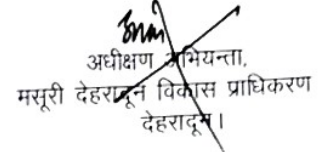 अधीक्षण अभियन्ता,
मसूरी देहरादून विकास प्राधिकरण
देहरादून।